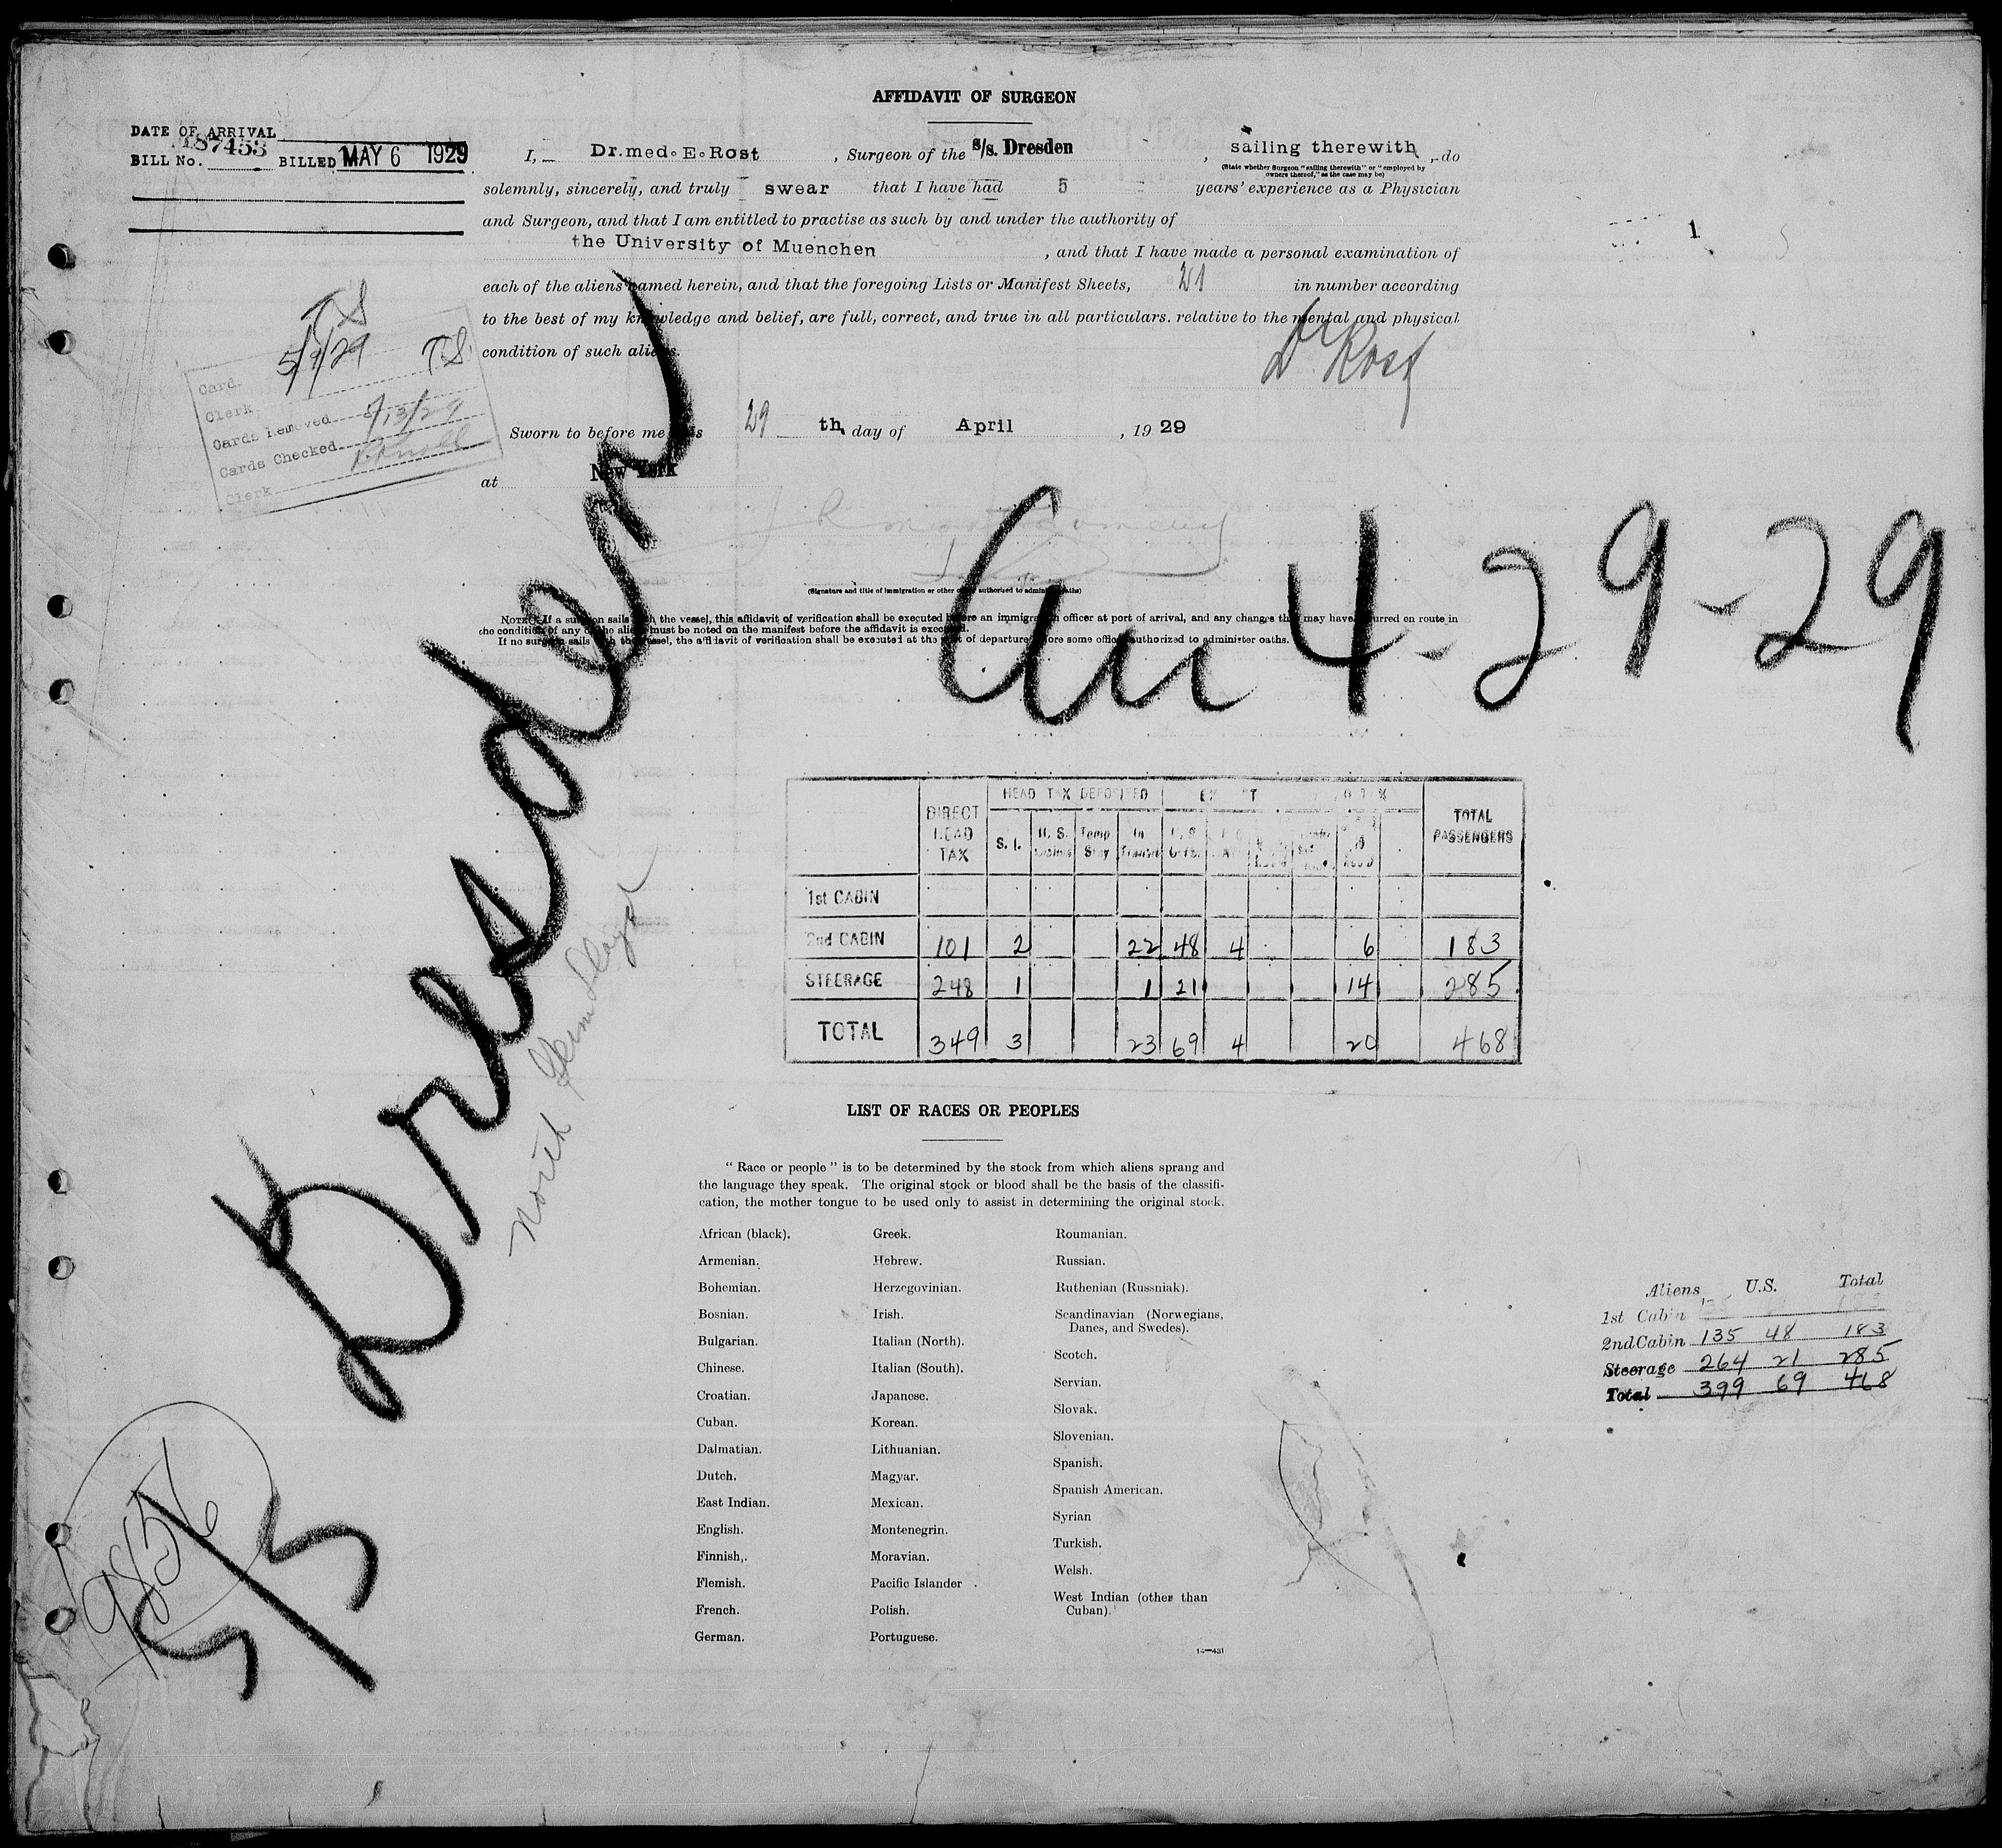 AFFIDAVIT OF SURGEON
DATE OF ARRIVAL
BILL No. 187453 BILLED MAY 6 1929
I, Dr.med. E. Rost, Surgeon of the S/s. Dresden, sailing therewith, do
(State whether Surgeon "sailing therewith" or "employed by
owners thereof," as the case may be)
solemnly, sincerely, and truly swear that I have had 5 years' experience as a Physician
and Surgeon, and that I am entitled to practise as such by and under the authority of
the University of Muenchen, and that I have made a personal examination of
each of the aliens named herein, and that the foregoing Lists or Manifest Sheets, 21 in number according
to the best of my knowledge and belief, are full, correct, and true in all particulars. relative to the mental and physical
condition of such aliens.
Dr Rost
1
TS
5/9/29 TS
Card
Clerk
Cards Removed 5/13/29
Cards Checked
Clerk
Sworn to before me this 29 th day of April, 1929
at New York
(Signature and title of immigration or other officer authorized to administer oaths)
NOTE.—If a surgeon sails with the vessel, this affidavit of verification shall be executed before an immigration officer at port of arrival, and any changes that may have occurred on route in
the condition of any of the aliens must be noted on the manifest before the affidavit is executed.
If no surgeon sails with the vessel, the affidavit of verification shall be executed at the port of departure before some officer authorized to administer oaths.
S/S Dresden
North Germ Lloyd
9856
Arr 4-29-29
DIRECT HEAD TAX HEAD TAX DEPOSITED TOTAL PASSENGERS
S. I. U. S. Temp Stay In Transit
1st CABIN
2nd CABIN 101 2 22 48 4 6 183
STEERAGE 248 1 1 21 14 285
TOTAL 349 3 23 69 4 20 468
LIST OF RACES OR PEOPLES
"Race or people" is to be determined by the stock from which aliens sprang and
the language they speak. The original stock or blood shall be the basis of the classifi-
cation, the mother tongue to be used only to assist in determining the original stock.
African (black).
Armenian.
Bohemian.
Bosnian.
Bulgarian.
Chinese.
Croatian.
Cuban.
Dalmatian.
Dutch.
East Indian.
English.
Finnish,.
Flemish.
French.
German.
Greek.
Hebrew.
Herzegovinian.
Irish.
Italian (North).
Italian (South).
Japanese.
Korean.
Lithuanian.
Magyar.
Mexican.
Montenegrin.
Moravian.
Pacific Islander.
Polish.
Portuguese.
Roumanian.
Russian.
Ruthenian (Russniak).
Scandinavian (Norwegians,
Danes, and Swedes).
Scotch.
Servian.
Slovak.
Slovenian.
Spanish.
Spanish American.
Syrian
Turkish.
Welsh.
West Indian (other than
Cuban).
14—431
Aliens U.S. Total
1st Cabin
2nd Cabin 135 48 183
Steerage 264 21 285
Total 399 69 468